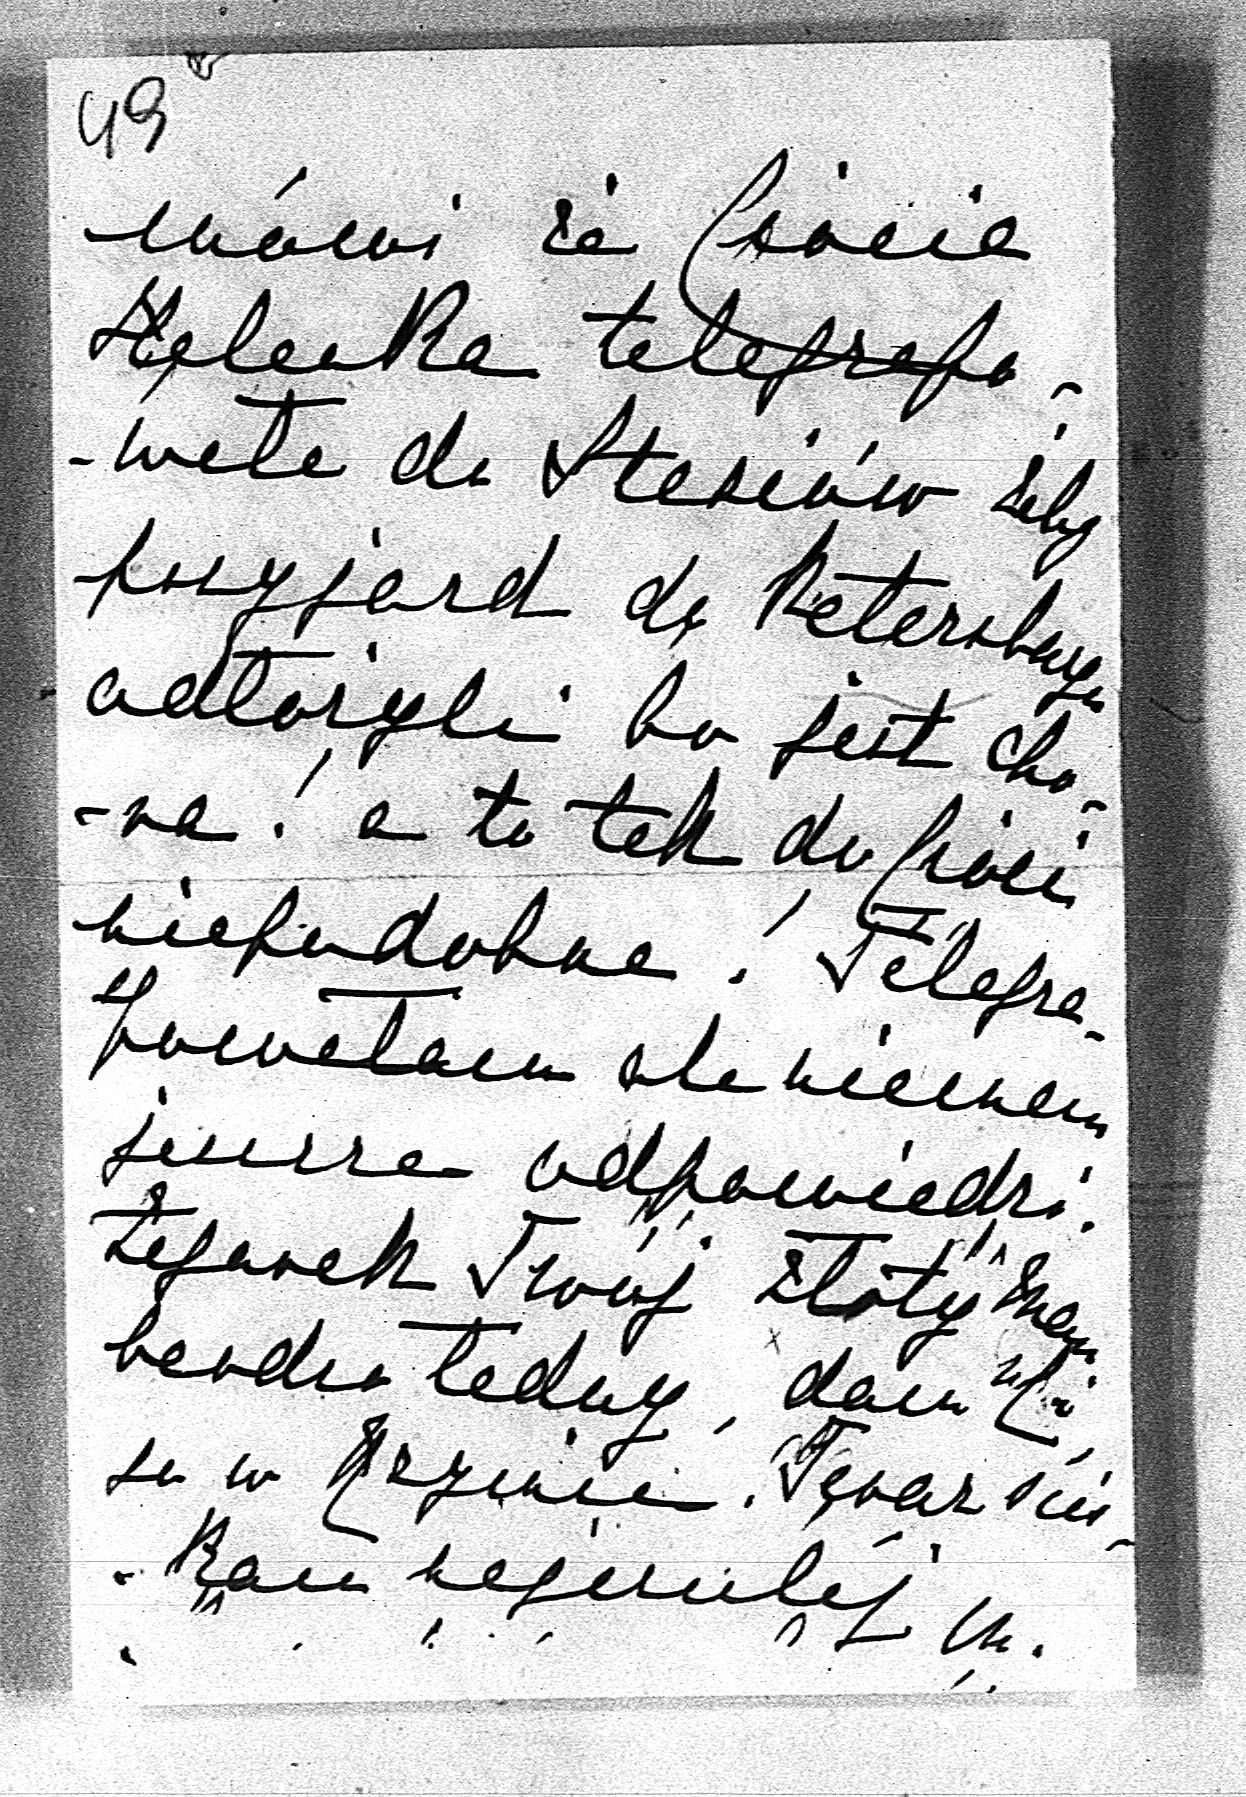 49
mówi że Ciocia
Helenka telegrafo-
-wała do Stasiów żeby
przyjazd do Petersburga
odłożyli bo jest cho-
-ra! a to tak do Cioci
niepodobne! Telegra-
fowałam ale niemam
jeszcze odpowiedzi.
Zegarek Twój złoty mam
bardzo ładny, dam Ci
go w Rzymie. Teraz ścis-
-kam najczulej M.